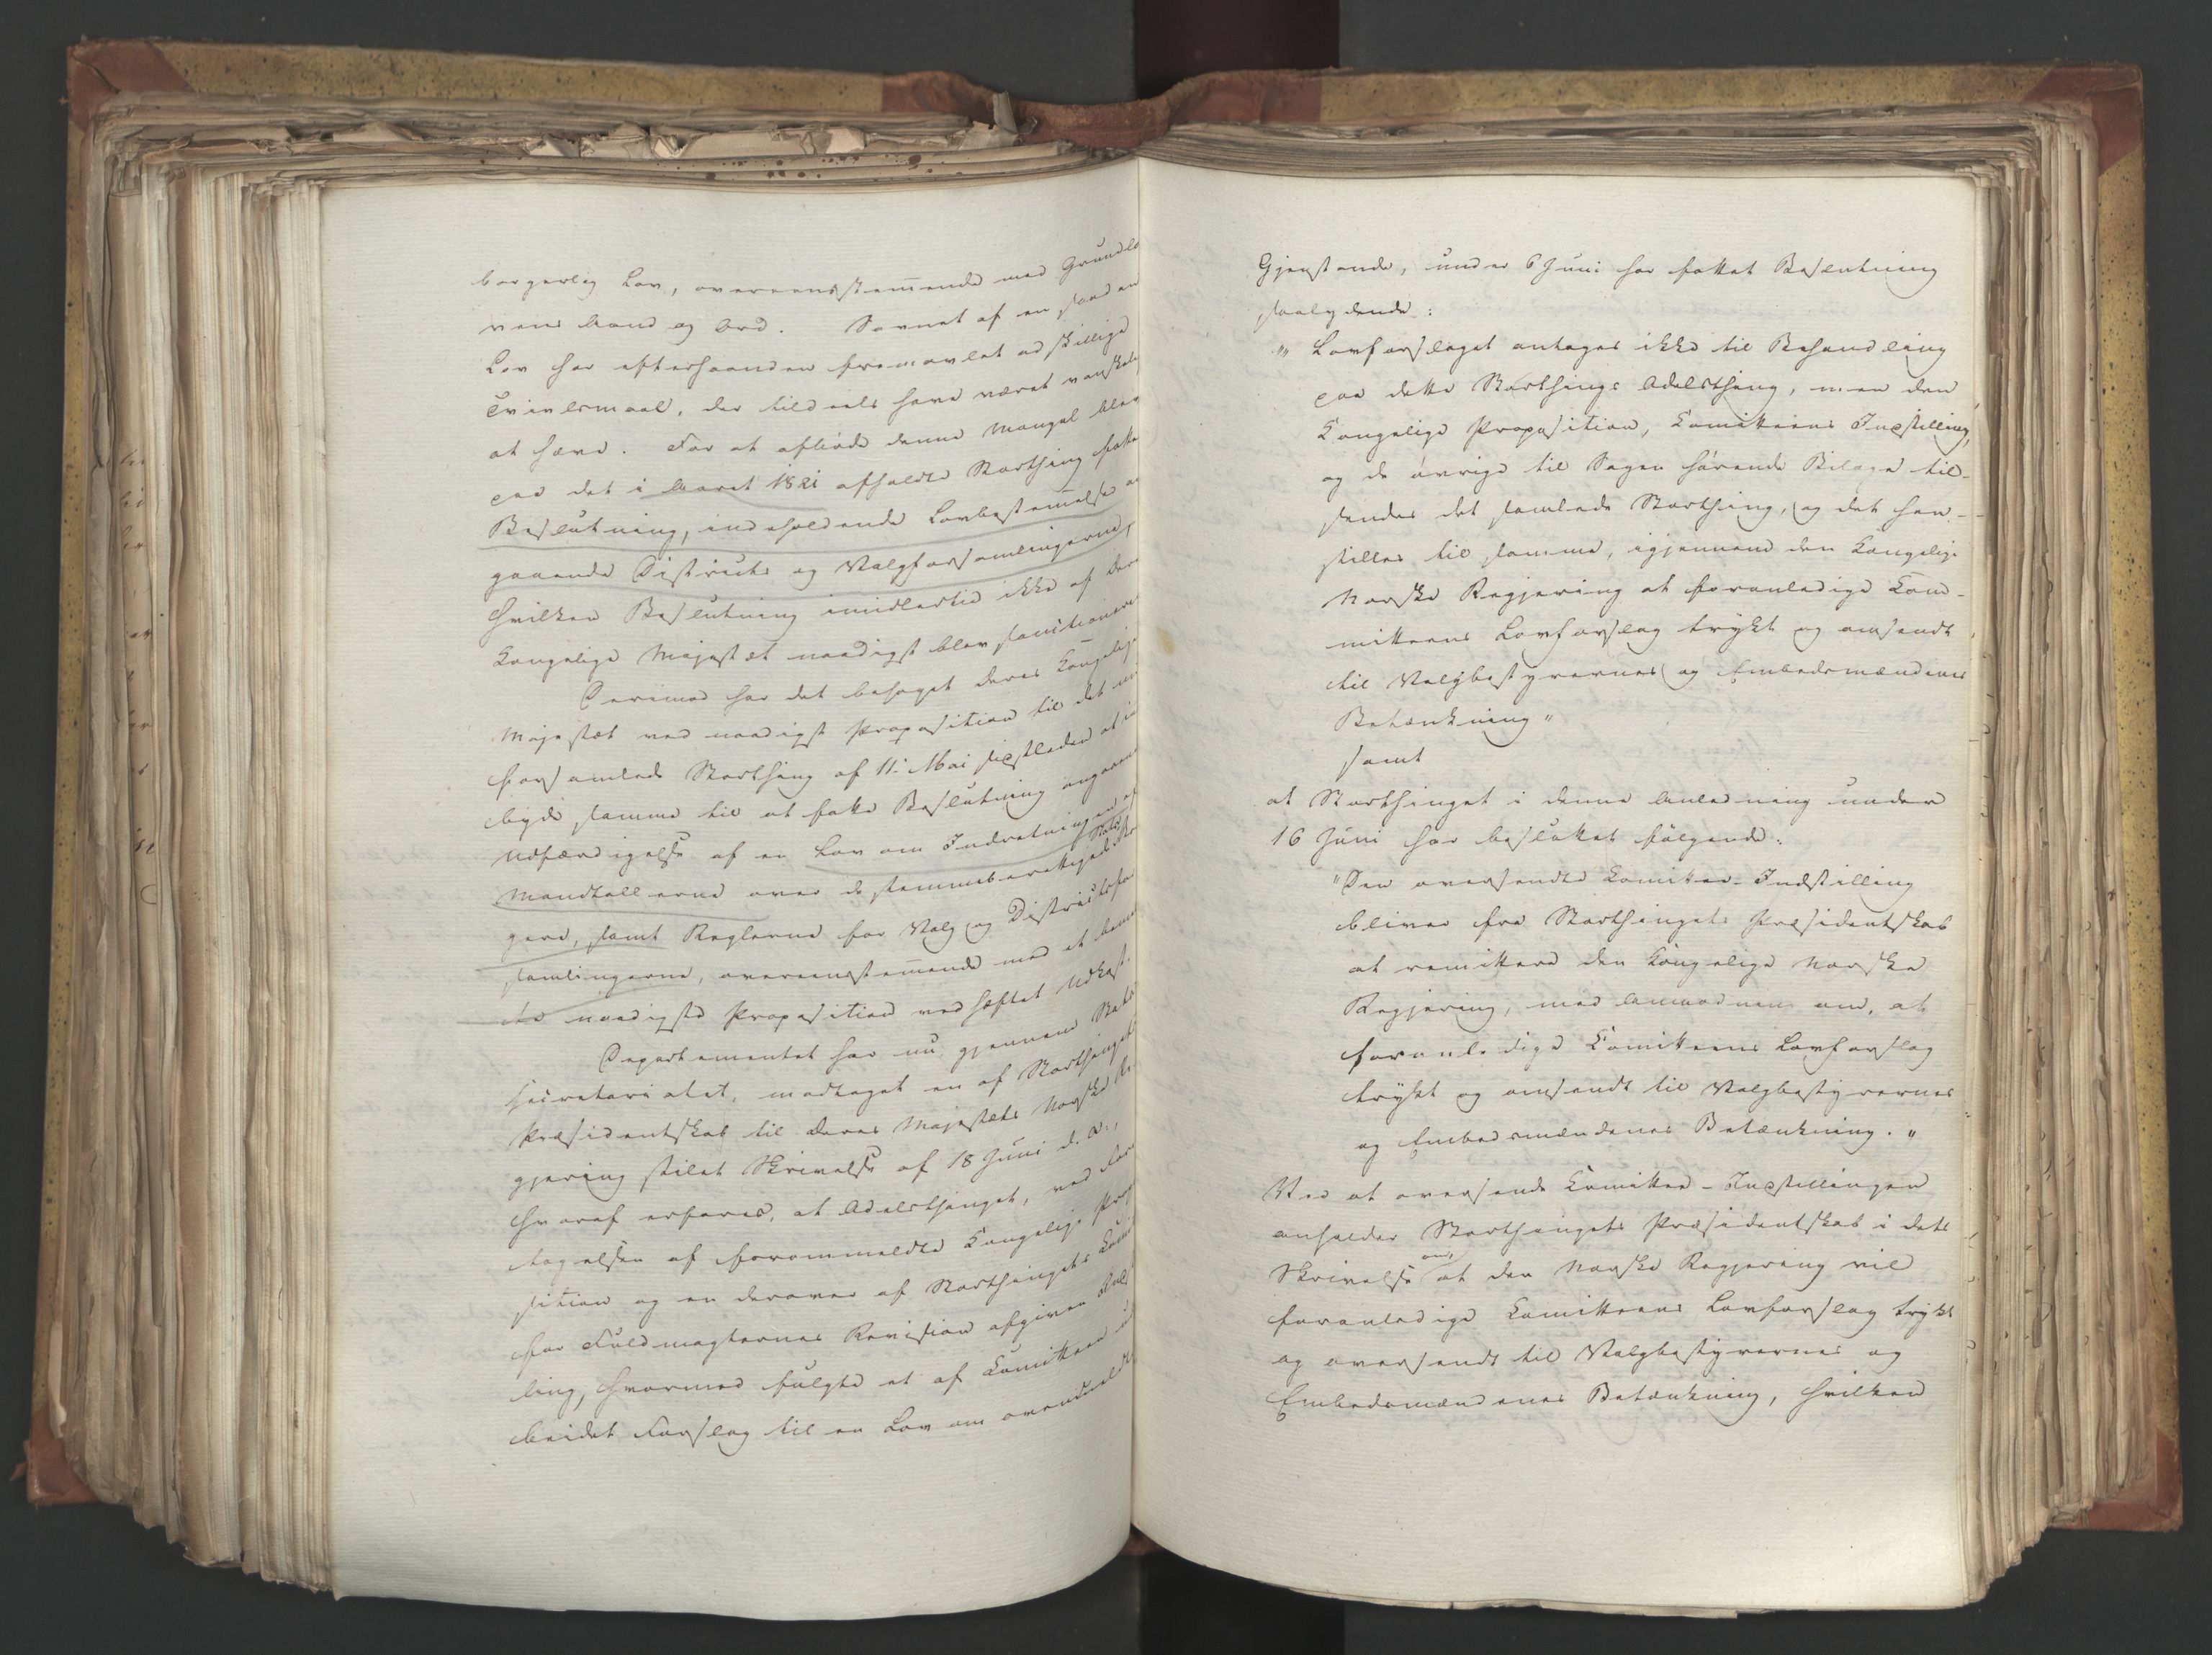 borgerlig Lov, overeensstemmende med Grundlo
vens Aand og Ord. Savnet af en saadan
Lov har efterhaanden fremavlet adskillige
Tvivlsmaal, der tildeels have været vanskel
at hæve. For at afbøde denne Mangel blev
paa det i Aaret 1821 afholdte Storthing fatte
Beslutning, indeholdende Lovbestemmelse a
gaaende Districts og Valgforsamlingerne,
hvilken Beslutning imidlertid ikke af Der
Kongelige Majestæt naadigst blev sanctioneret
Derimod har det behaget Deres Kongelig
Majestæt ved naadigst Proposition til det nu
forsamlede Storthing af 11. Mai sidstleden at ind
byde samme til at fatte Beslutning angaaend
Udfærdigelse af en Lov om Indretningen af
Mandtallerne over de stemmeberettigede Stats Bor
gere, samt Reglerne for Valg og Districtsfor
samlingerne, overeensstemmende med et bem
te naadigste Proposition vedhæftet Udkast.
Departementet har nu, gjennem Stats
Secretariatet, modtaget en af Storthingets
Præsidentskab til Deres Majestæts Norske Re
gjering stilet Skrivelse af 18 Juni d. A.,
hvoraf erfares, at Odelsthinget, ved For
tagelsen af forommeldte Kongelige Propo
sition og en derover af Storthingets Comit
for Fuldmagternes Revision afgiven Indstil
ling, hvormed fulgte et af Comitteen ud
beidet Forslag til en Lov om ovenmeldte
Gjenstande, under 6 Juni har fattet Beslutning
saalydende:
"Lovforslaget antages ikke til Behandling
paa dette Storthings Odelsthing, men den
Kongelige Proposition, Comitteens Indstilling,
og de øvrige til Sagen hørende Bilage til-
sendes det samlede Storthing, og det hen-
stilles til samme, igjennem den Kongelige
Norske Regjering at foranledige Com-
mitteens Lovforslag trykt og omsendt
til Valgbestyrernes og Embedsmændenes
Betænkning"
samt
at Storthinget i denne Anledning under
16 Juni har besluttet følgende:
"Den oversendte Comitee-Indstilling
bliver fra Storthingets Præsidentskab
at remittere den Kongelige Norske
Regjering, med Anmodning om, at
foranledige Comitteens Lovforslag
trykt og omsendt til Valgbestyrernes
og Embedsmændenes Betænkning."
Ved at oversende Comittee-Indstillingen
anholder Storthingets Præsidentskab i dets
Skrivelse om, at den Norske Regjering vil
foranledige Comitteens Lovforslag trykt
og oversendt til Valgbestyrernes og
Embedsmændenes Betænkning, hvilken